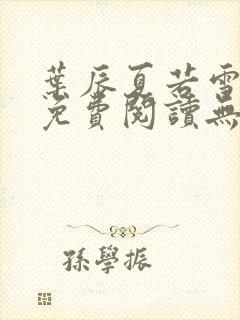 葉辰夏若雪
免費閱讀無
孫學振